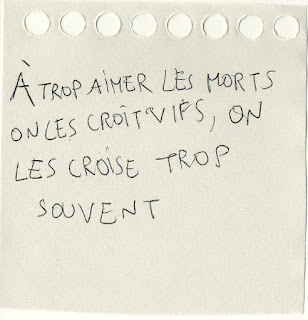 À TROP AIMER LES MORTS
ON LES CROIT VIFS, ON
LES CROISE TROP
SOUVENT